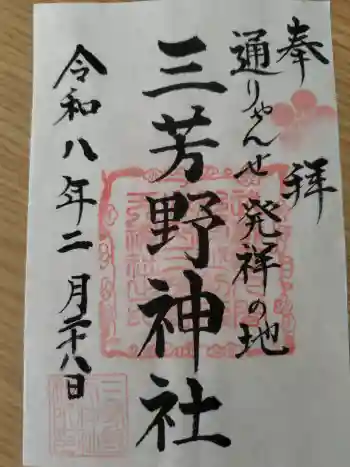 奉拝
通りゃんせ発祥の地
三芳野神社
令和八年二月二十八日